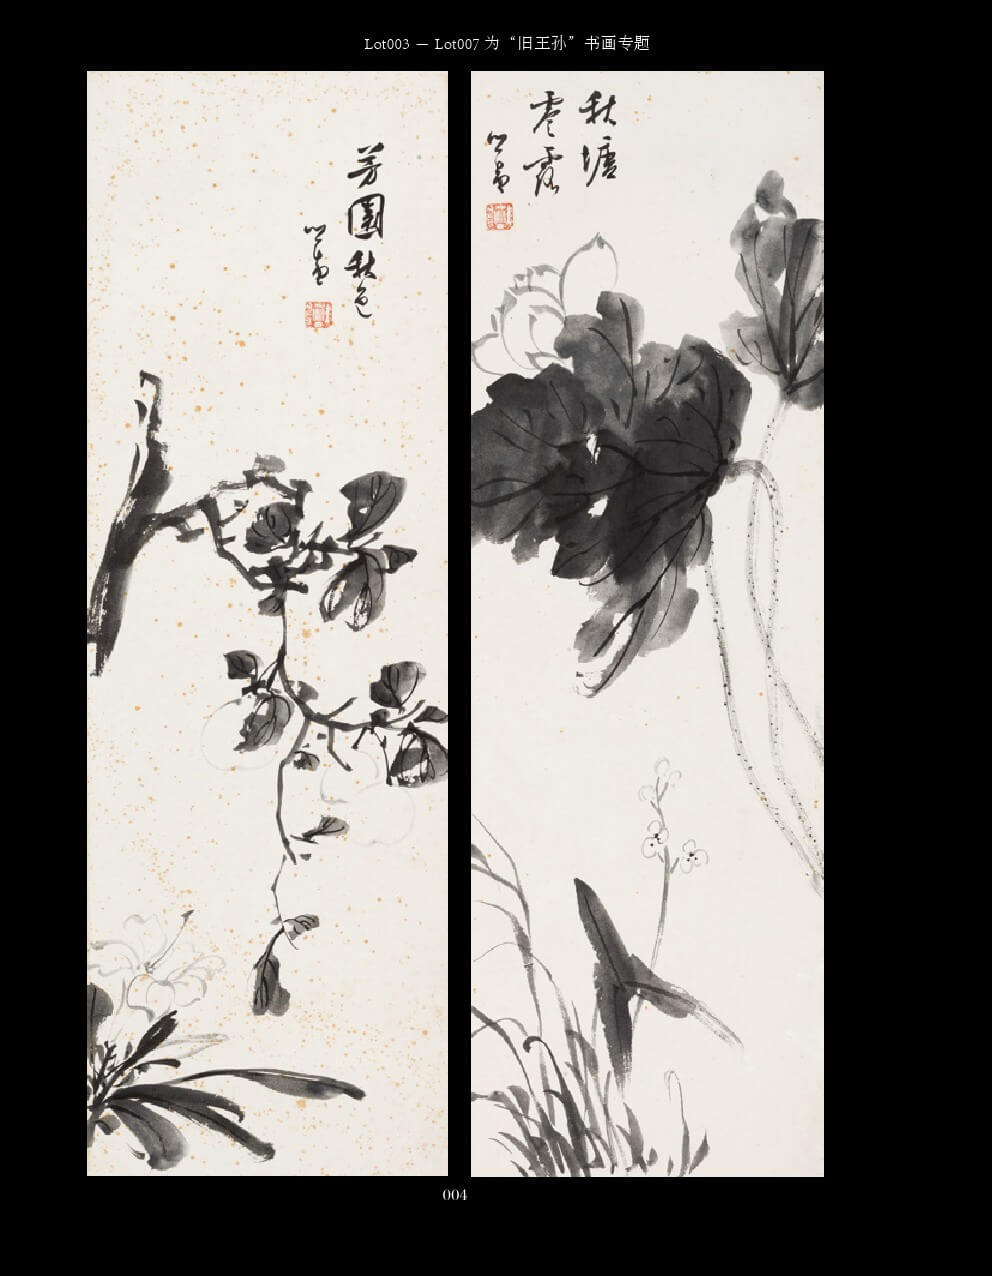 Lot003 — Lot007 为“旧王孙”书画专题
芳園秋色
心畬
秋塘
零露
心畬
004